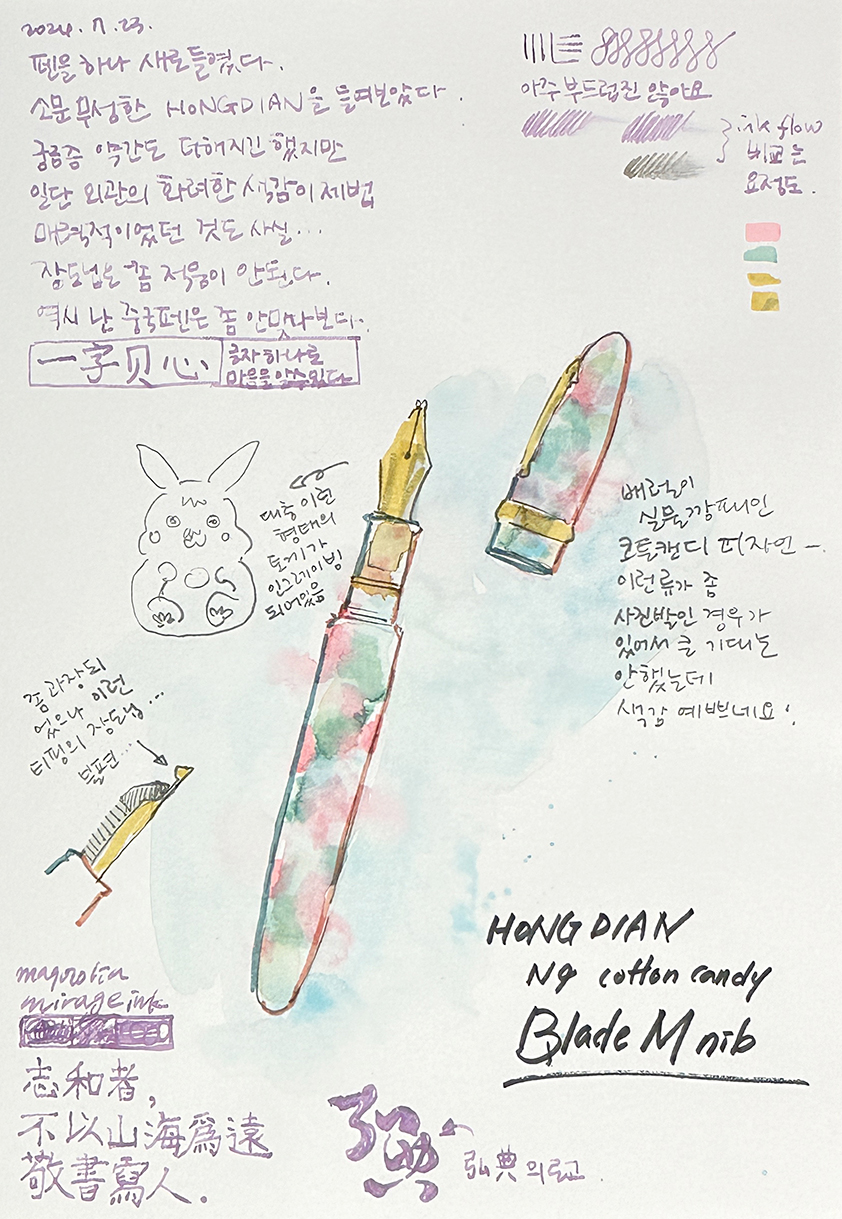 2024. 7. 23.
펜을 하나 새로 들였다.
소문 무성한 HONGDIAN을 들여보았다.
궁금증 약간도 더해지긴 했지만
일단 외관의 화려한 색감이 제법
매력적이었던 것도 사실...
장도닙은 좀 적응이 안된다.
역시 난 중국펜은 좀 안맞나보다..
一字贝心
글자 하나로
마음을 알 수 있다
아주 부드럽진 않아요
ink flow
비교는
요정도.
대충 이런
형태의
토끼가
인그레이빙
되어있음
배럴이
실물깡패인
코튼캔디 피자인ㅡ.
이런류가 좀
사진발인 경우가
있어서 큰 기대는
안했는데
색감 예쁘네요!
좀 과장되
었으나 이런
티핑의 장도닙...
불편...
HONGDIAN
N9 cotton candy
Blade M nib
mirage ink
志和者,
不以山海爲遠
敬書寫人.
弘典 의 로고.